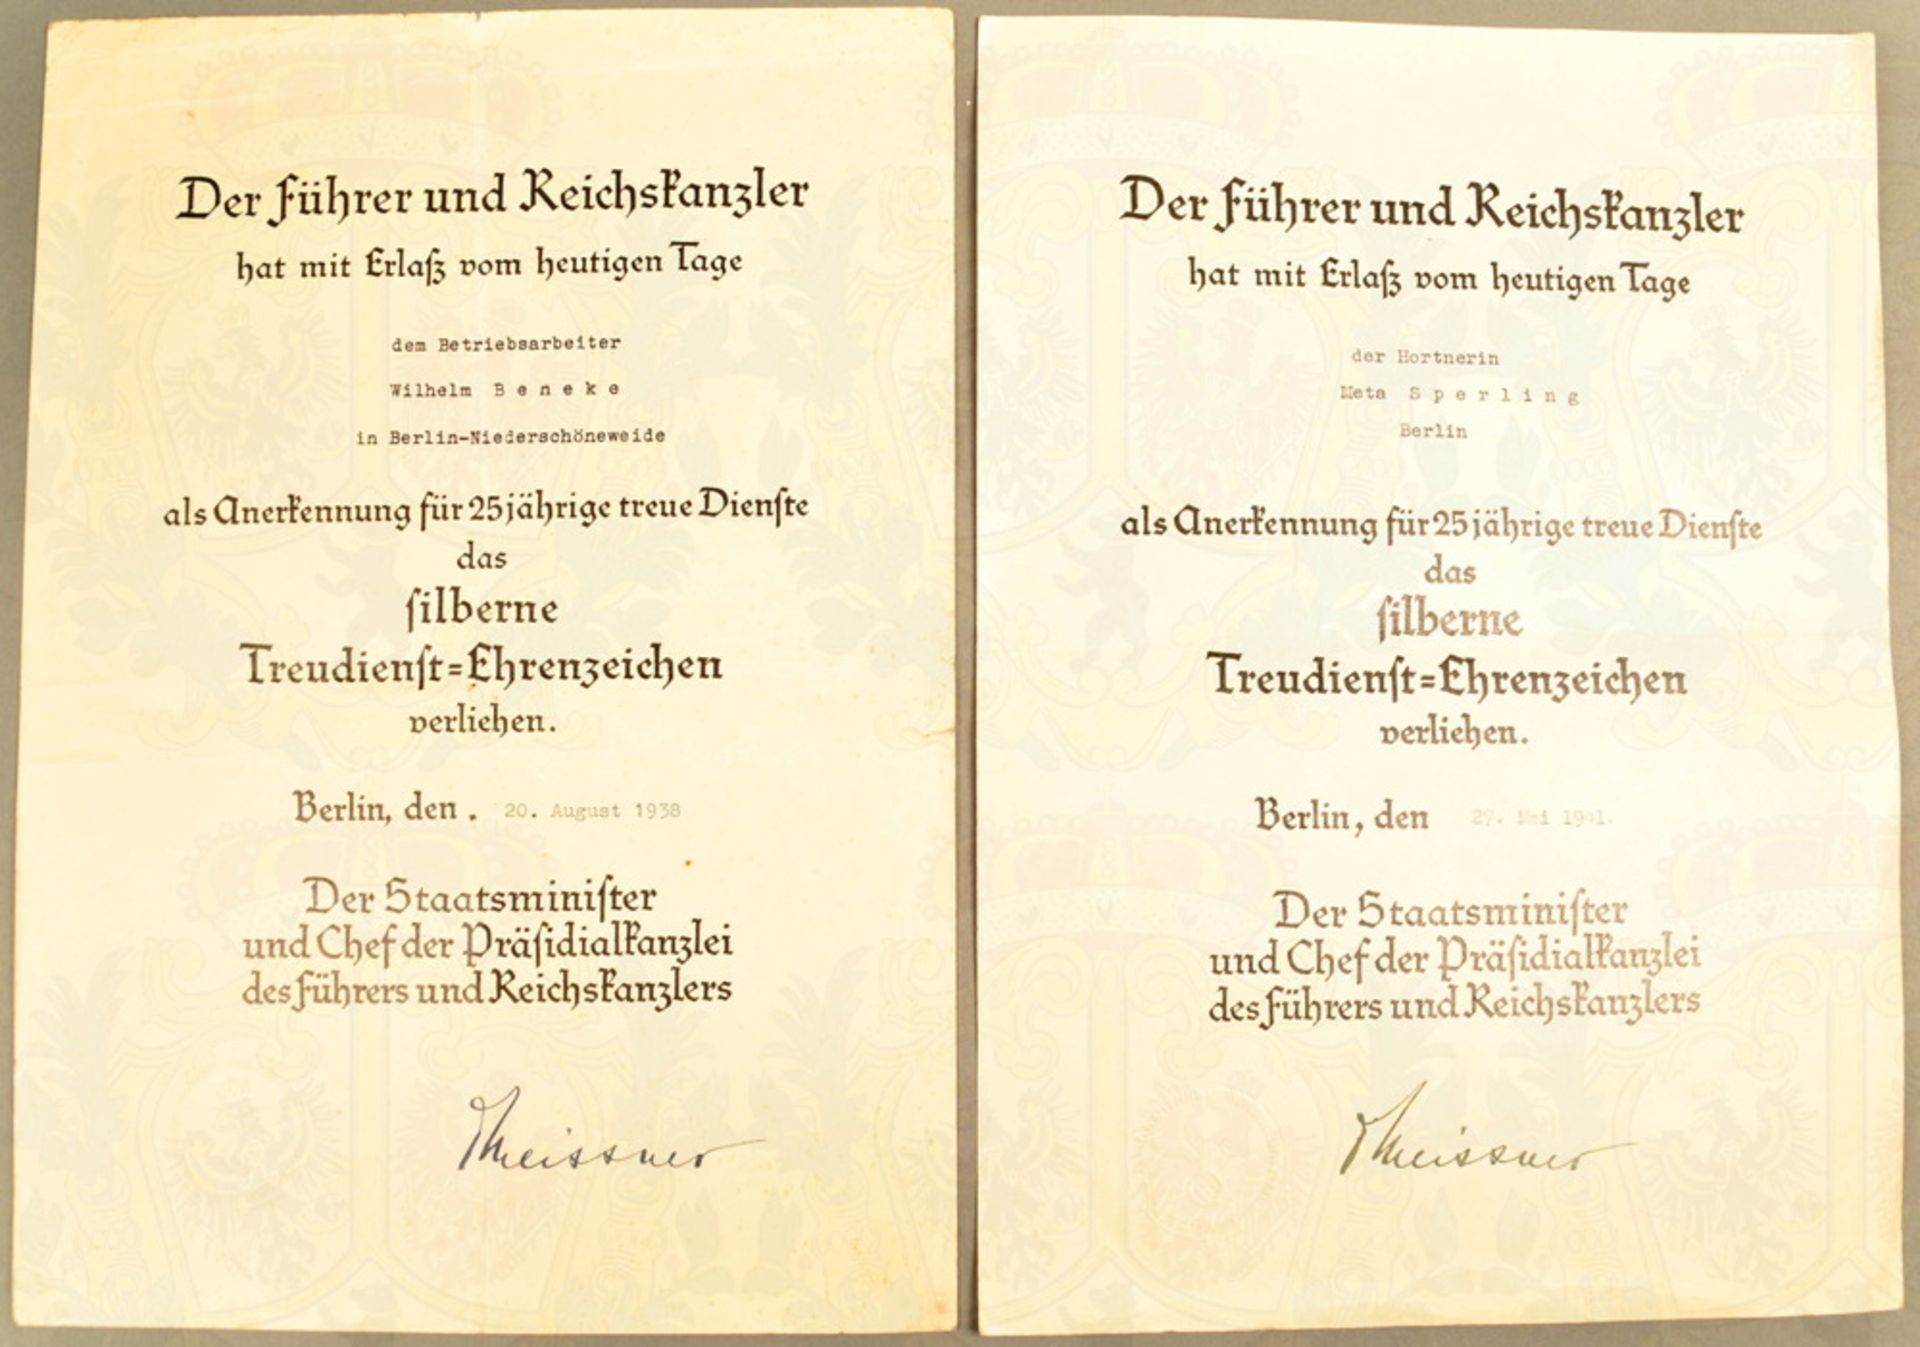 Der Führer und Reichskanzler
hat mit Erlaß vom heutigen Tage
dem Betriebsarbeiter
Wilhelm B e n e k e
in Berlin-Niederschöneweide
als Anerkennung für 25jährige treue Dienſte
das
ſilberne
Treudienſt=Ehrenzeichen
verliehen.
Berlin, den . 20. August 1938
Der Staatsminiſter
und Chef der Präſidialkanzlei
des Führers und Reichskanzlers
Meissner
Der Führer und Reichskanzler
hat mit Erlaß vom heutigen Tage
der Hortnerin
Meta S p e r l i n g
Berlin
als Anerkennung für 25jährige treue Dienſte
das
ſilberne
Treudienſt=Ehrenzeichen
verliehen.
Berlin, den 27. Mai 1941.
Der Staatsminiſter
und Chef der Präſidialkanzlei
des Führers und Reichskanzlers
Meissner